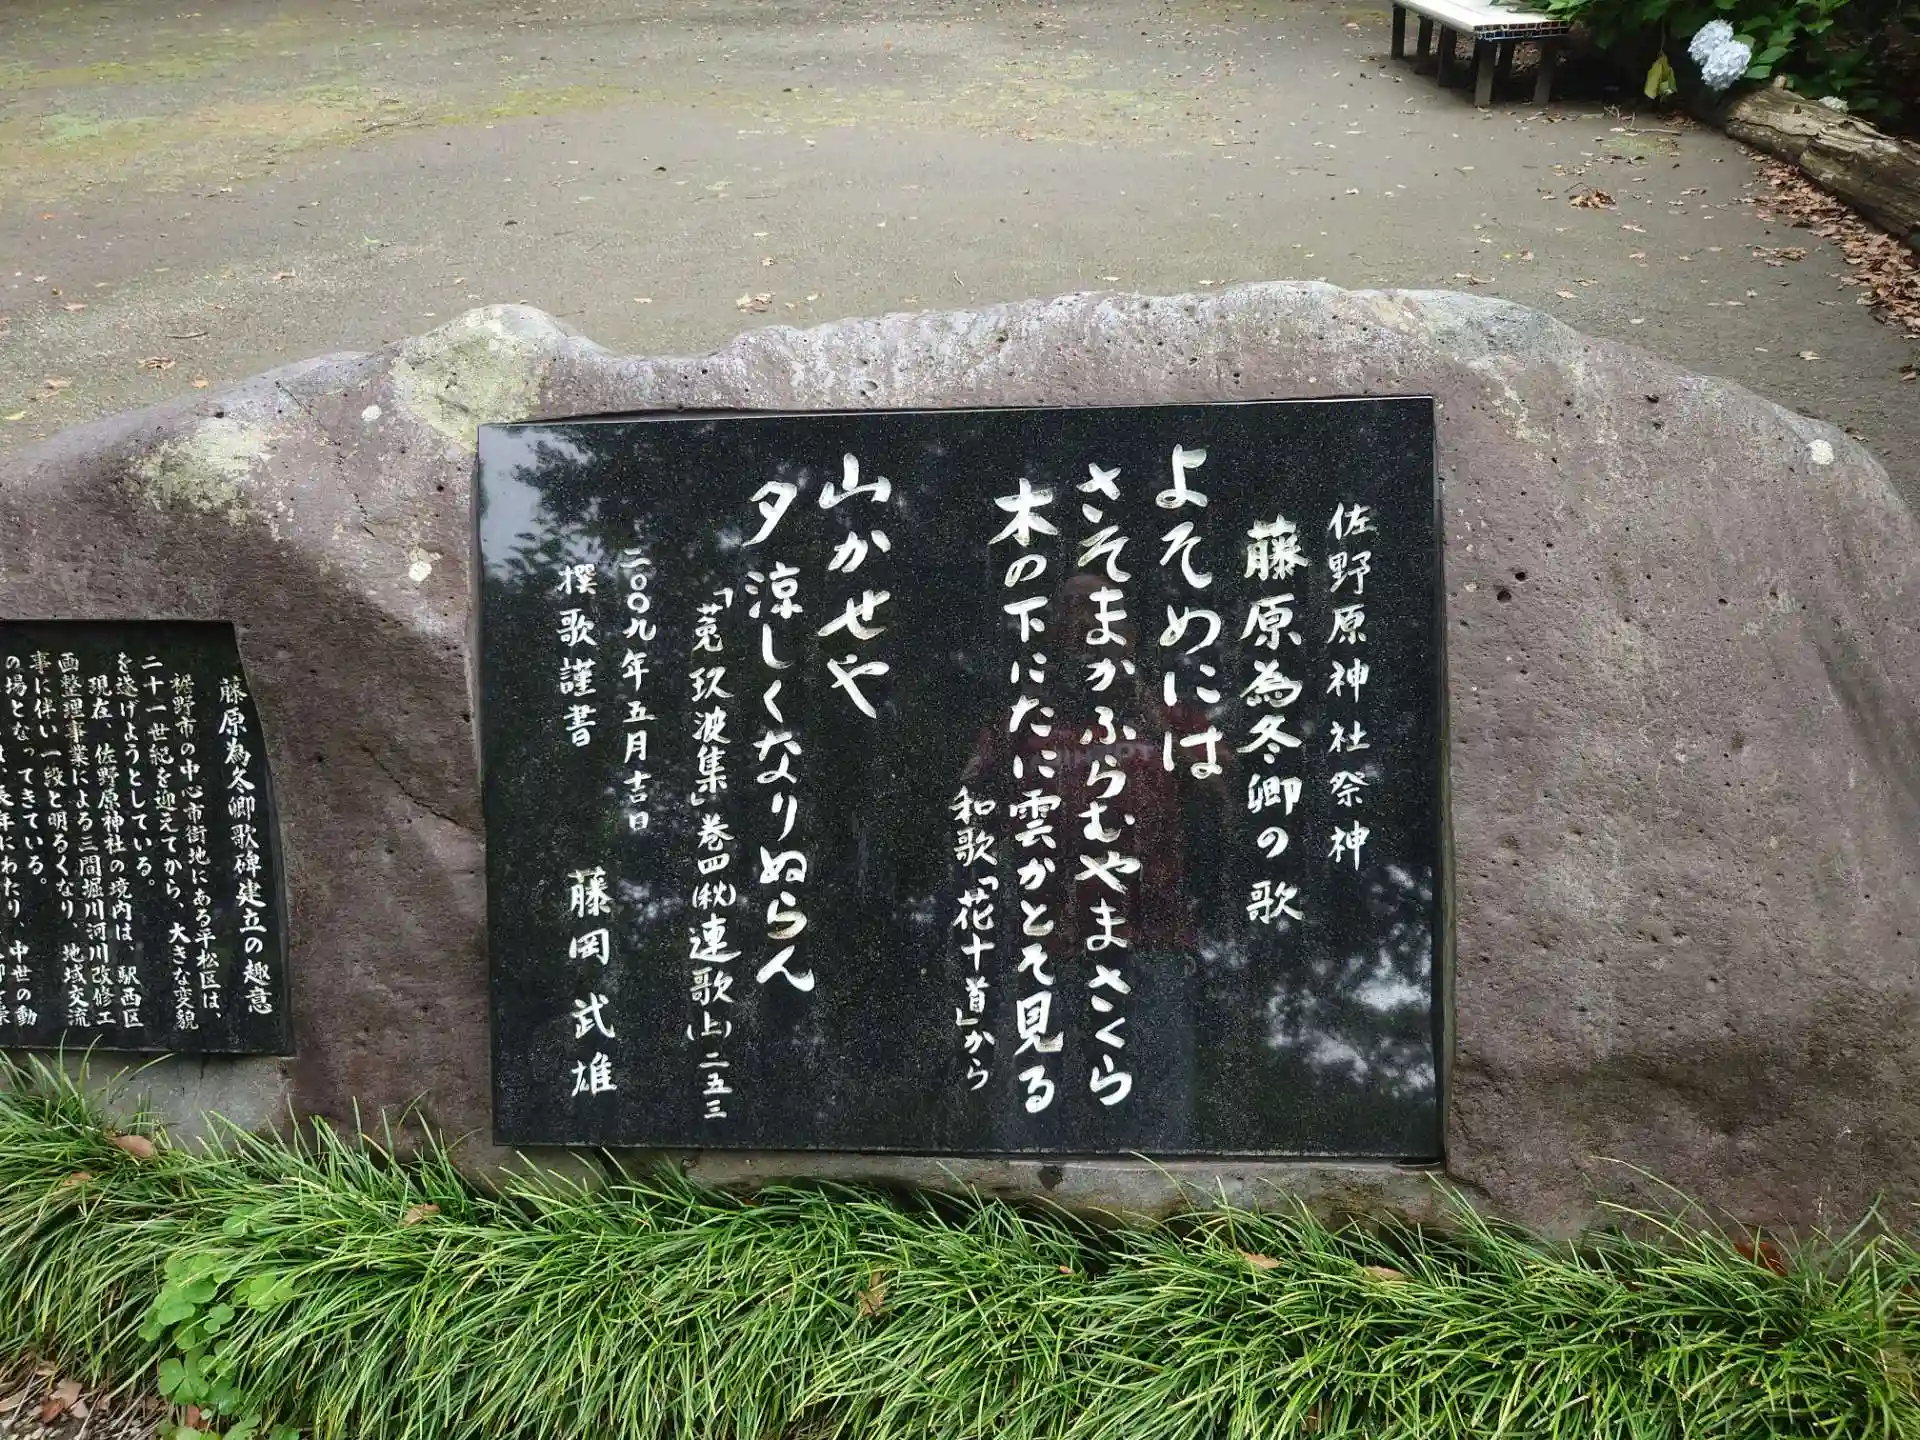 佐野原神社祭神
藤原為冬卿の歌
よそめには
さそまかふらむやまさくら
木の下にたに雲かとそ見る
和歌「花十首」から
山かせや
夕涼しくなりぬらん
「菟玖波集」巻四(秋)連歌(上)二五三
二〇〇九年五月吉日
撰歌謹書 藤岡武雄
藤原為冬卿歌碑建立の趣意
裾野市の中心市街地にある平松区は、
二十一世紀を迎えてから、大きな変貌
を遂げようとしている。
現在、佐野原神社の境内は、駅西区
画整理事業による三間堀川河川改修工
事に伴い一段と明るくなり、地域交流
の場となってきている。
長年にわたり、中世の動